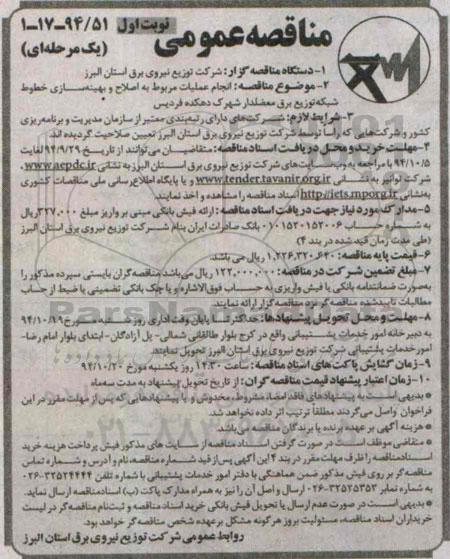 مناقصه عمومی
نوبت اول
۱-۱۷-۹۴/۵۱
(یک مرحله‌ای)
۱- دستگاه مناقصه گزار: شرکت توزیع نیروی برق استان البرز
۲- موضوع مناقصه: انجام عملیات مربوط به اصلاح و بهینه‌سازی خطوط
شبکه توزیع برق معضلدار شهرک دهکده فردیس
۳- شرایط لازم: شرکت‌های دارای رتبه‌بندی معتبر از سازمان مدیریت و برنامه‌ریزی
کشور و شرکت‌هایی که رأسا توسط شرکت توزیع نیروی برق استان البرز تعیین صلاحیت گردیده اند
۴- مهلت خرید و محل دریافت اسناد مناقصه: متقاضیان می‌توانند از تاریخ ۹۴/۹/۲۹ لغایت
۹۴/۱۰/۵ با مراجعه به وب سایت‌های شرکت توزیع نیروی برق استان البرز به نشانی www.aepdc.ir
شرکت توانیر به نشانی www.tender.tavanir.org.ir و یا پایگاه اطلاع‌رسانی ملی مناقصات کشوری
به‌نشانی http://iets.mporg.ir اسناد مناقصه را مشاهده و اخذ نمایند.
۵- مدارک مورد نیاز جهت دریافت اسناد مناقصه: ارائه فیش بانکی مبنی بر واریز مبلغ ۳۲۷,۰۰۰ ریال
به شماره حساب ۰۱۰۱۵۲۰۱۵۲۰۰۶ بانک صادرات ایران بنام شرکت توزیع نیروی برق استان البرز
(طی مدت زمان قید شده در بند ۴)
۶- قیمت پایه مناقصه: ۱,۲۲۶,۳۲۰,۶۴۰ ریال می باشد.
۷- مبلغ تضمین شرکت در مناقصه: ۱۲۲,۰۰۰,۰۰۰ ریال می‌باشد مناقصه‌گران بایستی سپرده مذکور را
به‌صورت ضمانتنامه بانکی یا فیش واریزی به حساب فوق‌الاشاره و یا چک بانکی تضمینی یا ضبط از حساب
مطالبات تایید‌شده مناقصه گر نزد مناقصه‌گزار ارائه نمایند.
۸- مهلت و محل تحویل پیشنهادها: حداکثر تا پایان وقت اداری روز شنبه مورخ ۹۴/۱۰/۱۹
به دبیر خانه امور خدمات پشتیبانی واقع در کرج بلوار طالقانی شمالی- پل آزادگان- ابتدای بلوار امام رضا-
امور خدمات پشتیبانی شرکت توزیع نیروی برق استان البرز تحویل نمایند.
۹- زمان گشایش پاکت های اسناد مناقصه: ساعت ۱۴:۳۰ روز یکشنبه مورخ ۹۴/۱۰/۲۰
۱۰- زمان اعتبار پیشنهاد قیمت مناقصه گران: از تاریخ تحویل پیشنهاد به مدت سه‌ماه
* بدیهی است به پیشنهادهای فاقد امضا، مشروط، مخدوش و یا پیشنهادهایی که پس از مهلت مقرر در این
فراخوان واصل می‌گردند مطلقا ترتیب اثر داده نخواهد شد.
* هزینه آگهی بر عهده برنده یا برندگان مناقصه می‌باشد.
* متقاضی موظف است در صورت گرفتن اسناد مناقصه از سایت های مذکور فیش پرداخت هزینه خرید
اسناد مناقصه را ظرف مهلت مقرر در بند ۴ این آگهی پس از قید شماره مناقصه، نام و آدرس و شماره تماس
مناقصه‌گر بر روی فیش مذکور ضمن هماهنگی با دفتر امور خدمات پشتیبانی با شماره تلفن ۳۲۵۲۴۴۴۴-۰۲۶
به شماره نمابر ۳۲۵۲۵۳۵۳-۰۲۶ ارسال و اصل آن را نیز به همراه مدارک پاکت (ب) اسناد مناقصه ارسال نماید.
* بدیهی است در صورت عدم ارسال یا تحویل فیش بانکی خرید اسناد مناقصه و ثبت نام مناقصه‌گر در لیست
خریداران اسناد مناقصه، مسئولیت بروز هرگونه مشکل برعهده شخص مناقصه‌گر خواهد بود.
روابط عمومی شرکت توزیع نیروی برق استان البرز